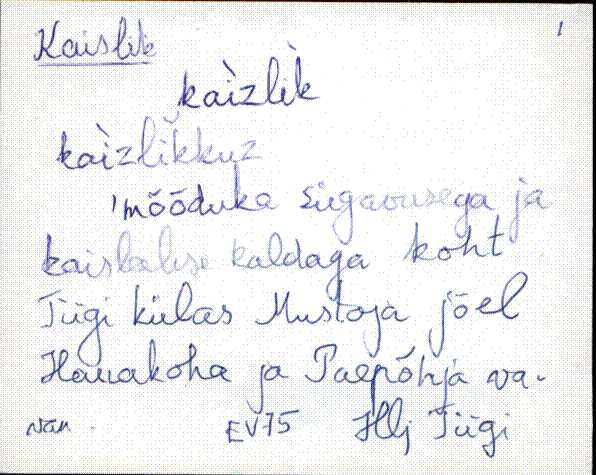 Kaislik 1
kaìzlìk
kaìzlĭkkuz
'mõõduka sügavusega ja
kaislakse kaldaga koht
Tiigi külas Mustoja jõel
Hauakoha ja Paepõhja va-
EV75 Hlj Tiigi